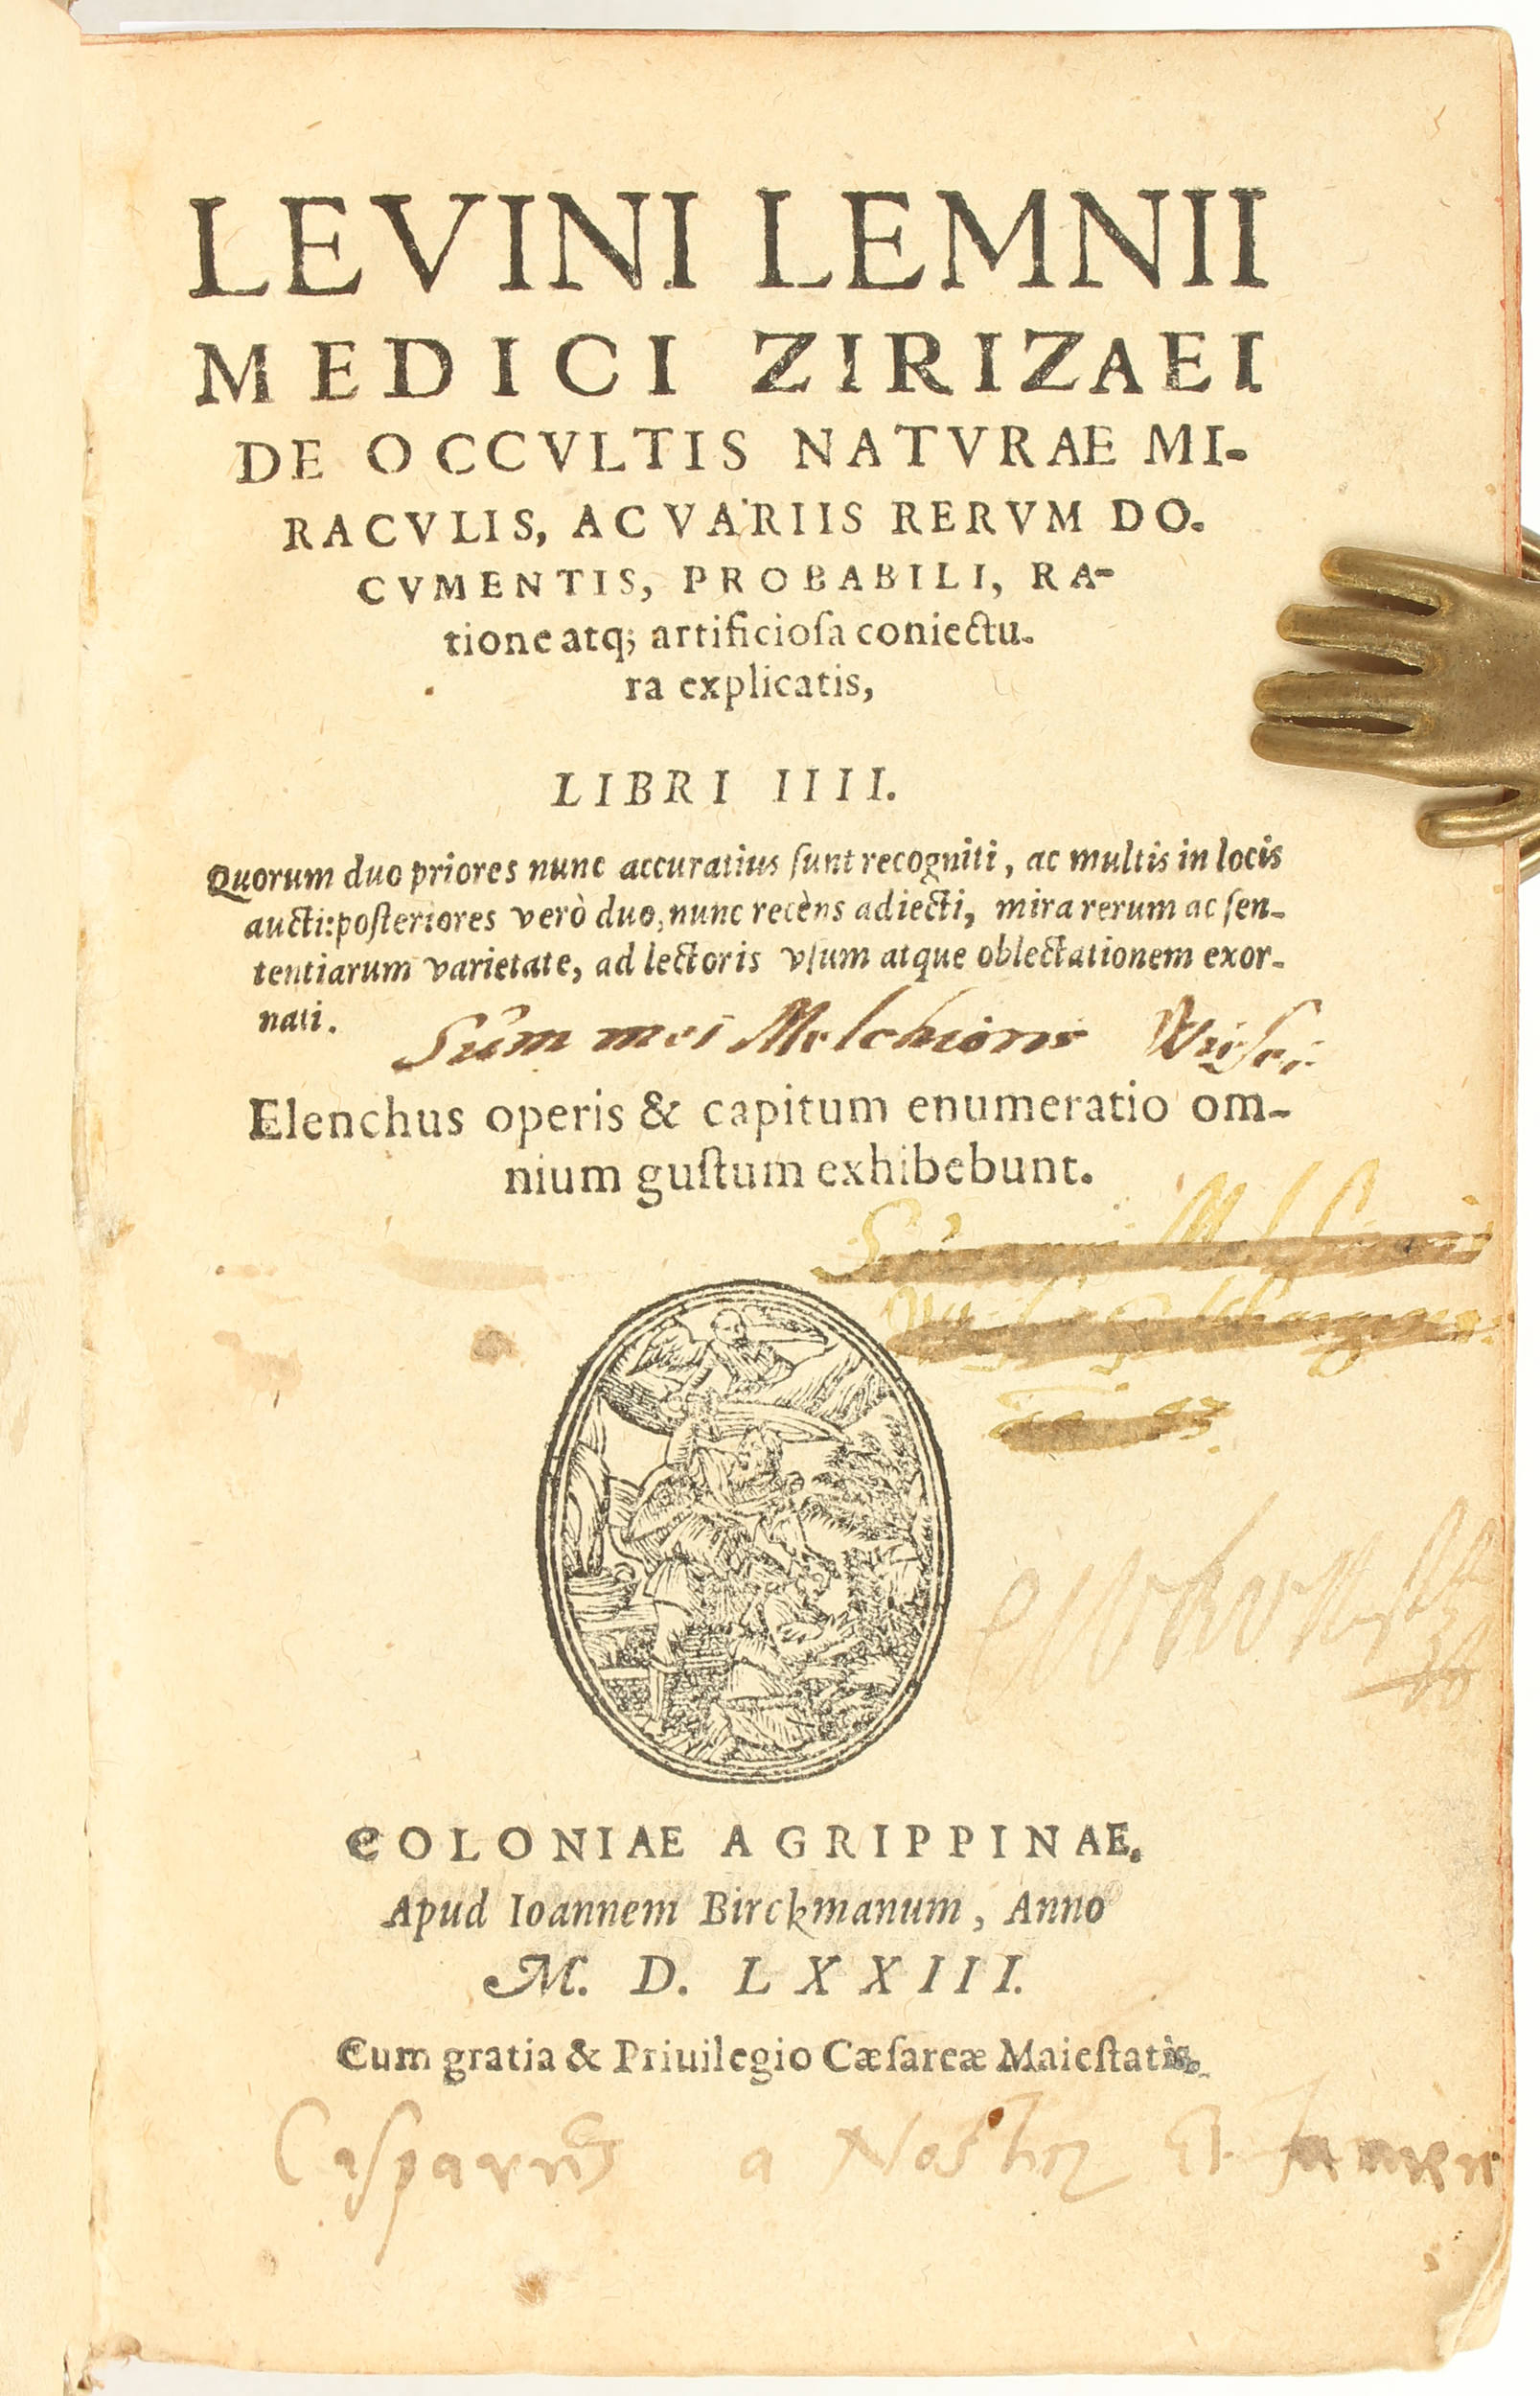 LEVINI LEMNII
MEDICI ZIRIZAEI
DE OCCVLTIS NATVRAE MI-
RACVLIS, AC VARIIS RERVM DO-
CVMENTIS, PROBABILI, RA-
tione atq; artificioſa coniectu-
ra explicatis,
LIBRI IIII.
Quorum duo priores nunc accuratius ſunt recogniti, ac multis in locis
aucti: poſteriores verò duo, nunc recèns adiecti, mira rerum ac ſen-
tentiarum varietate, ad lectoris vſum atque oblectationem exor-
nati.
Sum mei Melchioris
Elenchus operis & capitum enumeratio om-
nium guſtum exhibebunt.
COLONIAE AGRIPPINAE.
Apud Ioannem Birckmanum, Anno
M. D. LXXIII.
Cum gratia & Priuilegio Cæſareæ Maieſtatis.
Casparus a